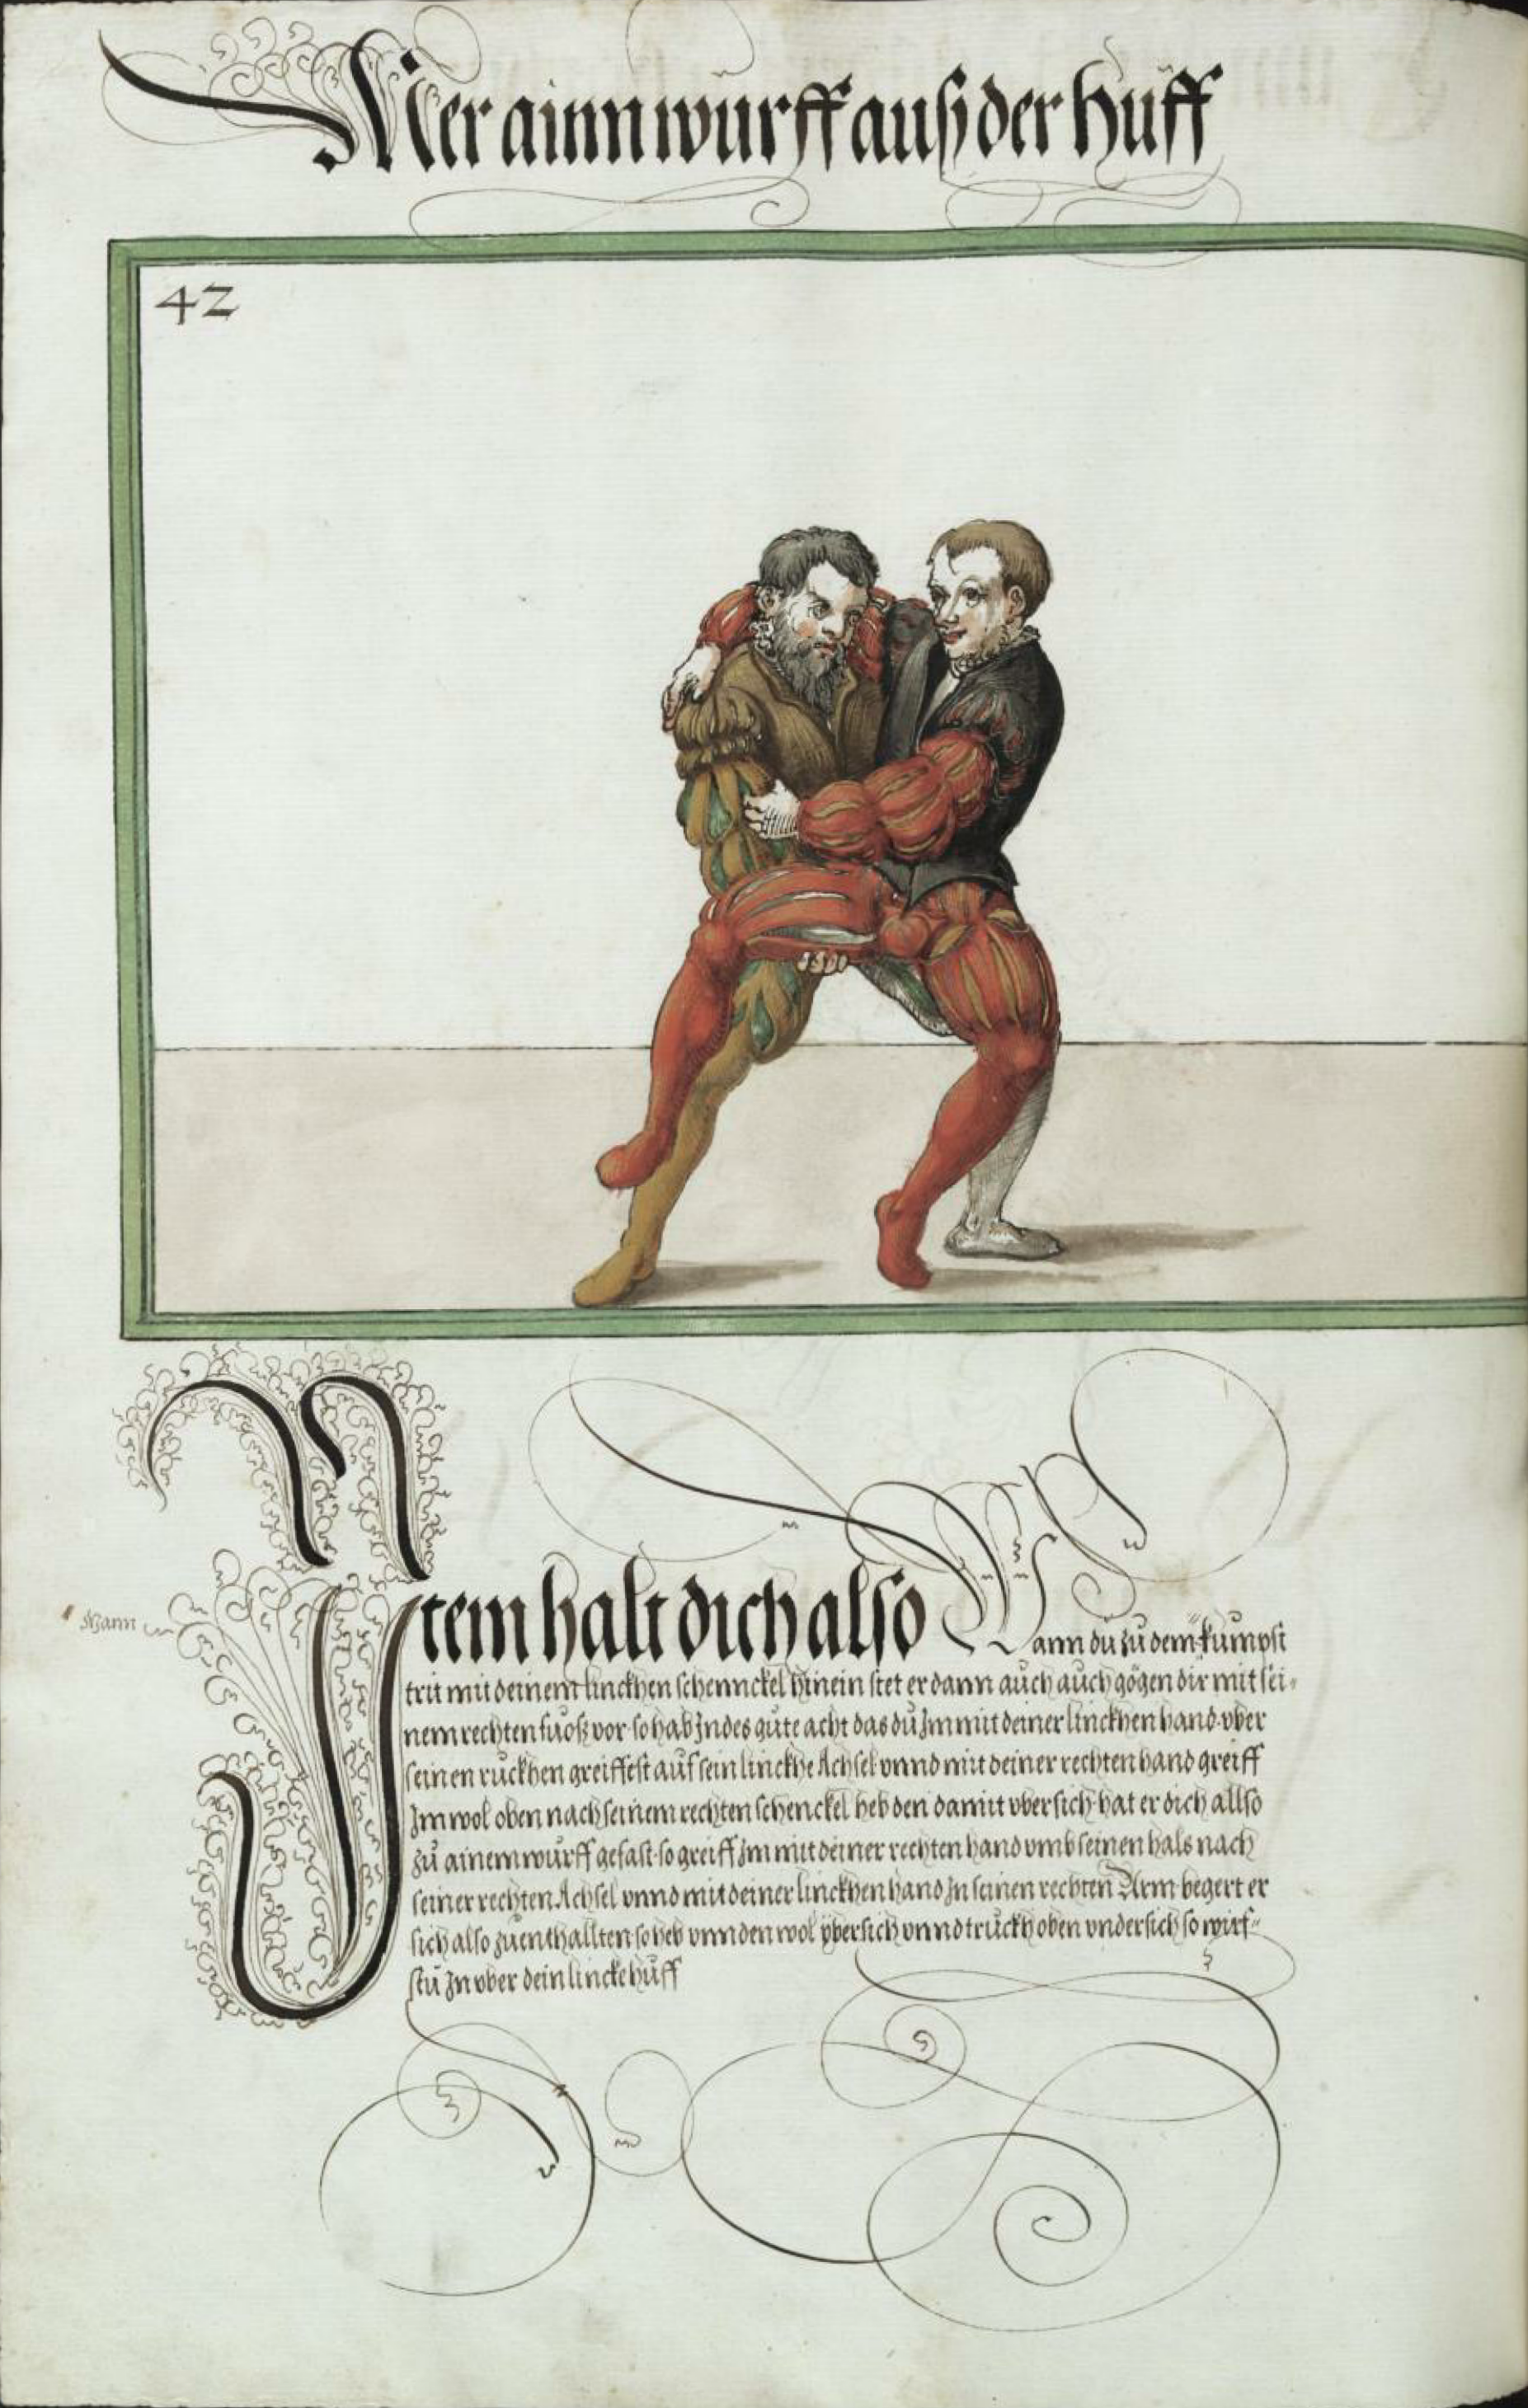 Mer ainn wurff auß der Huff
42
Item halt dich also Wann du zu dem kumpst
Mann
trit mit deinem linckhen schennckel hinein stet er dann auch auch gögen dir mit sei-
nem rechten fuoß vor so hab Indes gute acht das du Im mit deiner linckhen hand vber
seinen ruckhen greiffest auf sein linckhe Achsel vnnd mit deiner rechten hand greiff
Im wol oben nach seinem rechten schenckel heb den damit vber sich hat er dich allso
zu ainem wurff gefast so greiff Im mit deiner rechten hand vmb seinen hals nach
seiner rechten Achsel vnnd mit deiner linckhen hand In seinen rechten Arm begert er
sich also zuenthallten so heb vnnden wol vbersich vnnd truckh oben vndersich so wirf-
stu In vber dein lincke huff